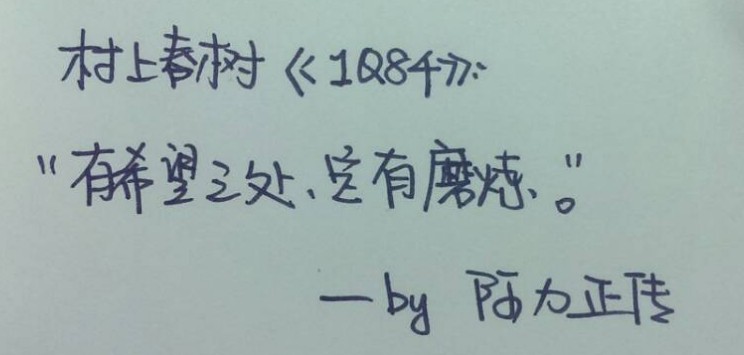 村上春树《1Q84》:
“有希望之处、定有磨炼、”。
—by 阿力正传